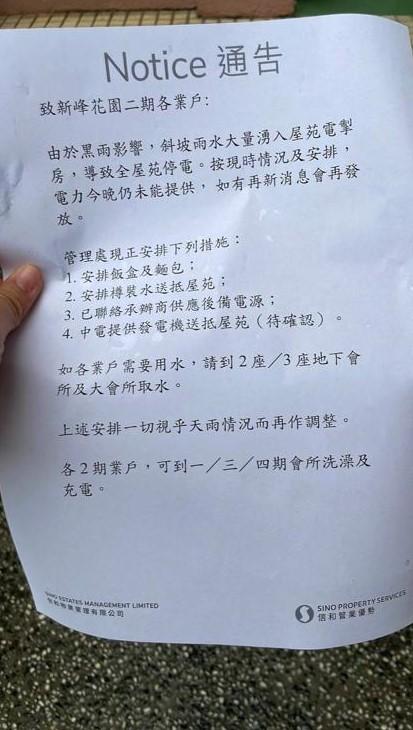 Notice 通告
致新峰花園二期各業戶:
由於黑雨影響，斜坡雨水大量湧入屋苑電掣
房，導致全屋苑停電。按現時情況及安排，
電力今晚仍未能提供，如有再新消息會再發
放。
管理處現正安排下列措施：
1. 安排飯盒及麵包；
2. 安排樽裝水送抵屋苑；
3. 已聯絡承辦商供應後備電源；
4. 中電提供發電機送抵屋苑（待確認）。
如各業戶需要用水，請到2座／3座地下會
所及大會所取水。
上述安排一切視乎天雨情況而再作調整。
各2期業戶，可到一／三／四期會所洗澡及
充電。
SINO ESTATES MANAGEMENT LIMITED
信和物業管理有限公司
SINO PROPERTY SERVICES
信和管業優勢